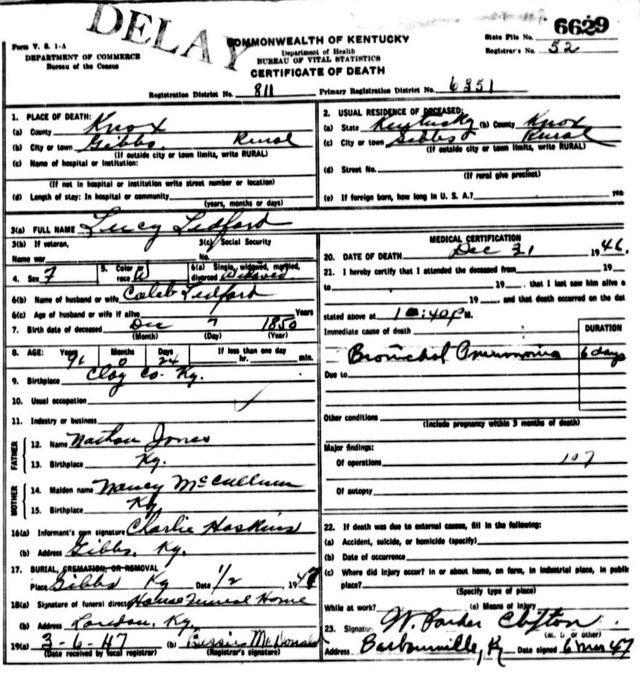 DELAY
COMMONWEALTH OF KENTUCKY
Department of Health
BUREAU OF VITAL STATISTICS
CERTIFICATE OF DEATH
Form V. S. 1-A
DEPARTMENT OF COMMERCE
Bureau of the Census
State File No. 6629
Registrar's No. 52
Registration District No. 811 Primary Registration District No. 6351
1. PLACE OF DEATH:
(a) County Knox
(b) City or town Gibbs. Rural
(If outside city or town limits, write RURAL)
(c) Name of hospital or institution:
(If not in hospital or institution write street number or location)
(d) Length of stay: In hospital or community
(years, months or days)
2. USUAL RESIDENCE OF DECEASED:
(a) State Kentucky (b) County Knox
(c) City or town Gibbs Rural
(If outside city or town limits, write RURAL)
(d) Street No.
(If rural give precinct)
(e) If foreign born, how long in U. S. A.?
3(a) FULL NAME Lucy Ledford
3(b) If veteran,
Name war
3(c) Social Security
No.
4. Sex F 5. Color race W 6(a) Single, widowed, married, divorced Widowed
6(b) Name of husband or wife Caleb Ledford
6(c) Age of husband or wife if alive Years
7. Birth date of deceased Dec 7 1850
(Month) (Day) (Year)
8. AGE: Years 96 Months 0 Days 24 If less than one day
hr. min.
9. Birthplace Clay Co. Ky.
10. Usual occupation
11. Industry or business
FATHER
12. Name Nathan Jones
13. Birthplace Ky.
MOTHER
14. Maiden name Nancy McCullum
15. Birthplace Ky.
16(a) Informant's own signature Charlie Hoskins
(b) Address Gibbs, Ky.
17. BURIAL, CREMATION, OR REMOVAL
Place Gibbs Ky Date 1/2, 1947
18(a) Signature of funeral director House Funeral Home
(b) Address London, Ky.
19(a) 3-6-47 (b) Bessie McDonald
(Date received by local registrar) (Registrar's signature)
MEDICAL CERTIFICATION
20. DATE OF DEATH Dec 31 1946.
21. I hereby certify that I attended the deceased from 19
to 19 , that I last saw him alive o
19 , and that death occurred on the dat
stated above at 10:40 P M.
Immediate cause of death DURATION
Bronchial Pneumonia 6 days
Due to
Other conditions
(Include pregnancy within 3 months of death)
Major findings:
Of operations 107
Of autopsy
22. If death was due to external causes, fill in the following:
(a) Accident, suicide, or homicide (specify)
(b) Date of occurrence
(c) Where did injury occur? In or about home, on farm, in industrial place, in public
place?
(Specify type of place)
While at work? (e) Means of Injury
23. Signature W. Parker Clifton
(M. D or other)
Address Barbourville, Ky Date signed 6 Mar 47